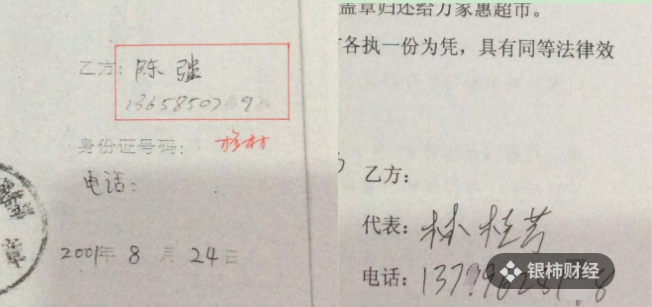 乙方：陈强
身份证号码：
电话：
2001年8月24日
盖章归还给万家惠超市。
各执一份为凭，具有同等法律效
乙方：
代表：林桂芳
电话：
银柿财经